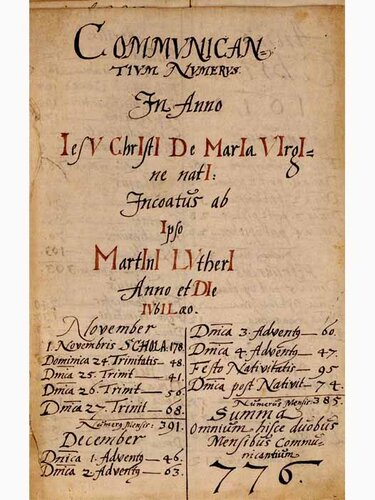 COMMVNICAN=
TIVM NVMERVS.
In Anno
IesV ChrIstI De MarIa VIrgI=
ne natI:
Incoatus ab
Ipso
MartInI LVtherI
Anno et DIe
IVbILæo.
November
1. Novembris SCHOLA. 178.
Dominica 24. Trinitatis — 48.
Dnica 25. Trinit — 41
Dnica 26. Trinit — 56
Dnica 27. Trinit — 68.
Numerg mensir: 391.
December
Dnica 1. Adventg — 46.
Dnica 2. Adventg — 63.
Dnica 3. Adventg — 60.
Dnica 4. Adventg — 47.
Festo Nativitatis — 95
Dnica post Nativit — 74.
Numerus Mensir: 385.
Summa
Omnium hisce duobus
Mensibus Commu-
nicantium
776.